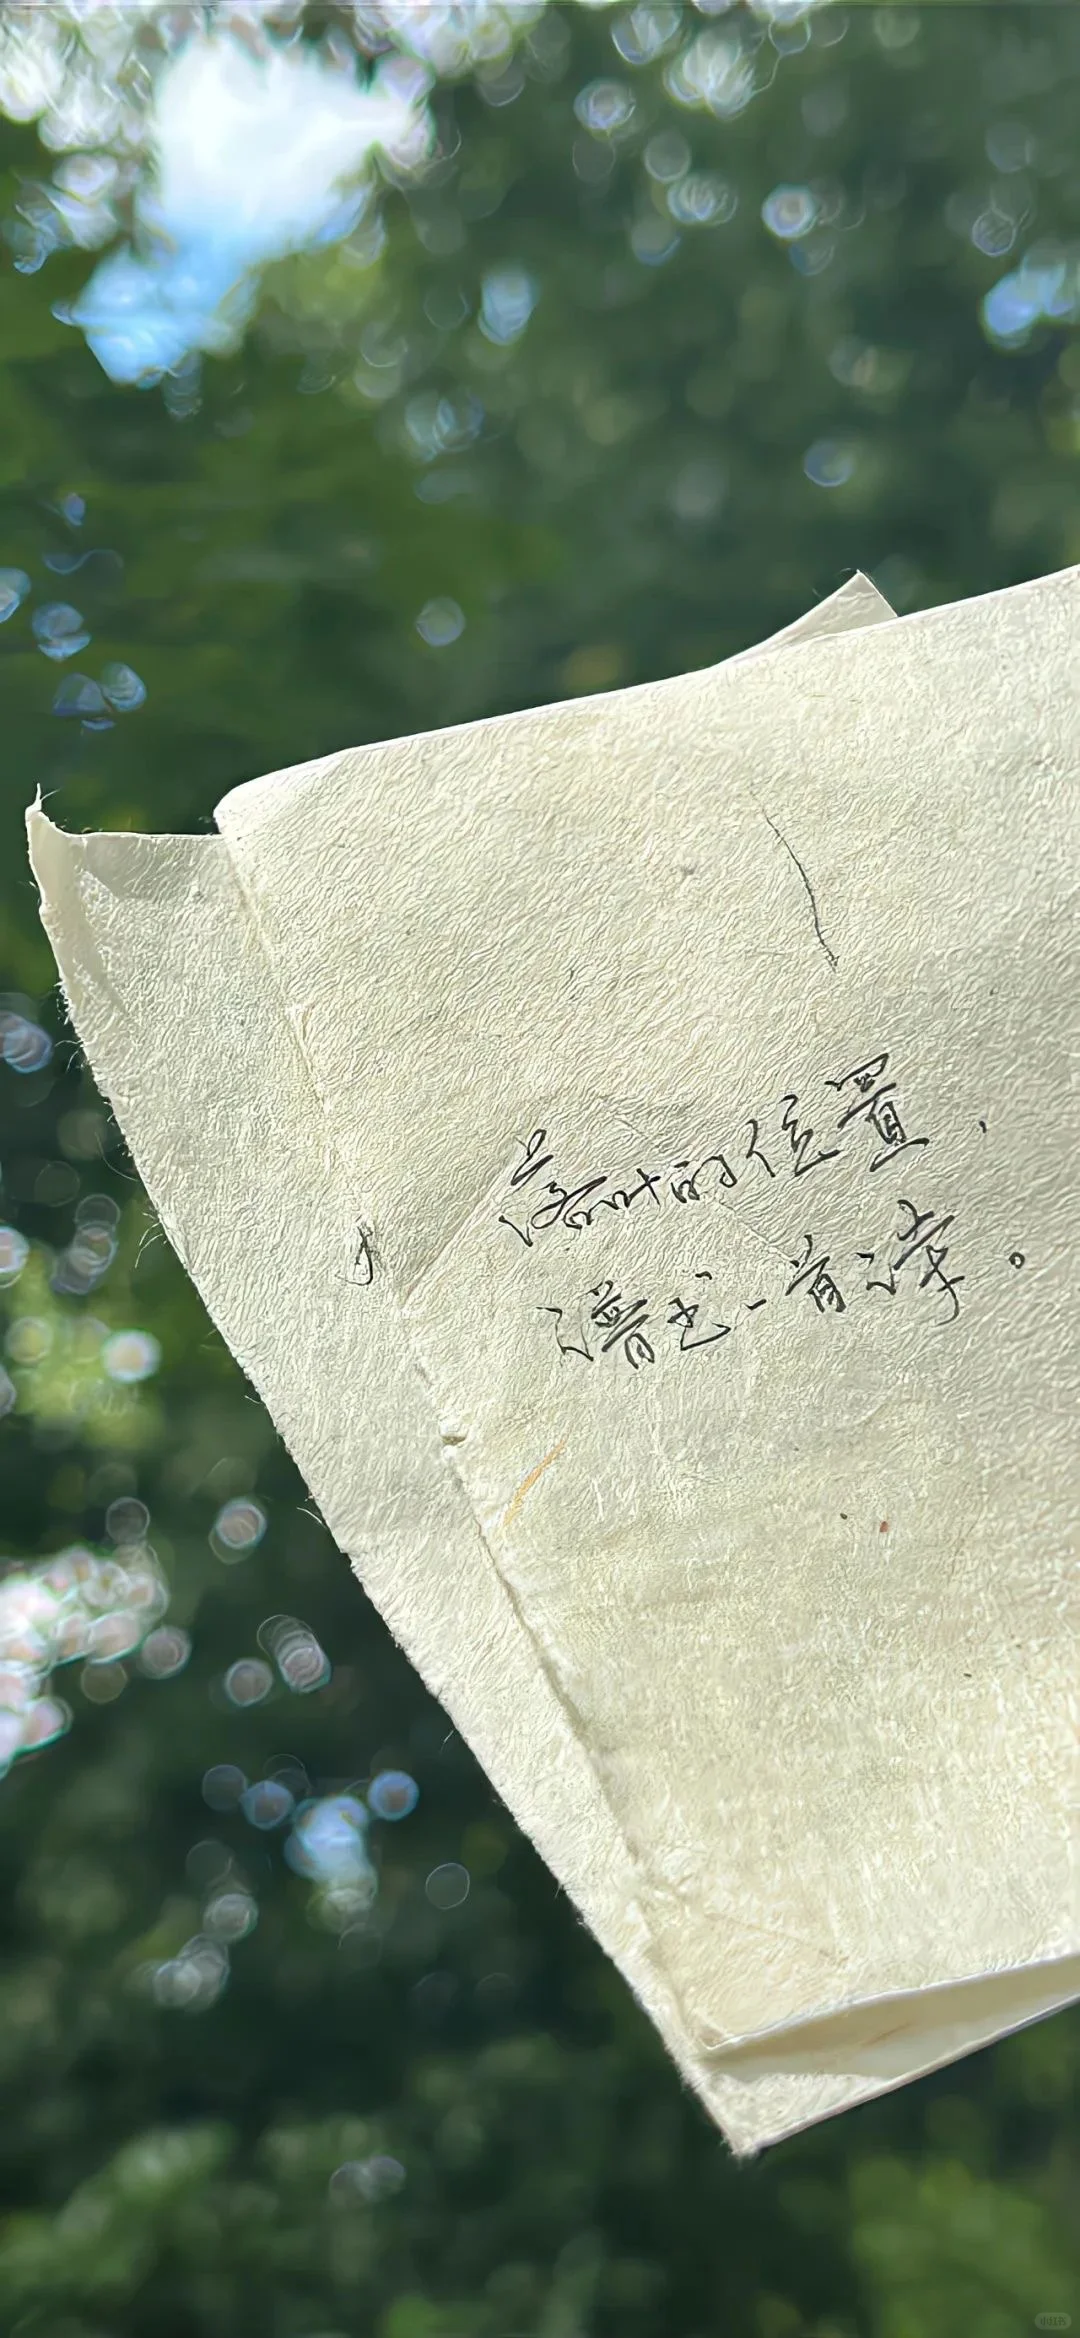 落叶的位置、
谱出一首诗。
小红书